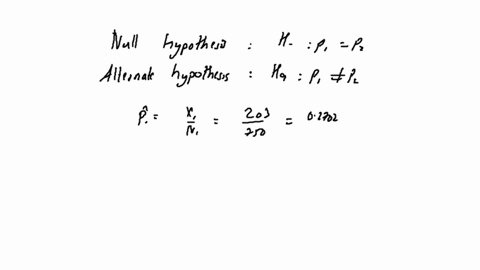 Null hypothesis : H- : p₁ = p₂
Alternate hypothesis : Ha : p₁ ≠ p₂
p̂₁ = x₁/N₁ = 203/750 = 0.2702